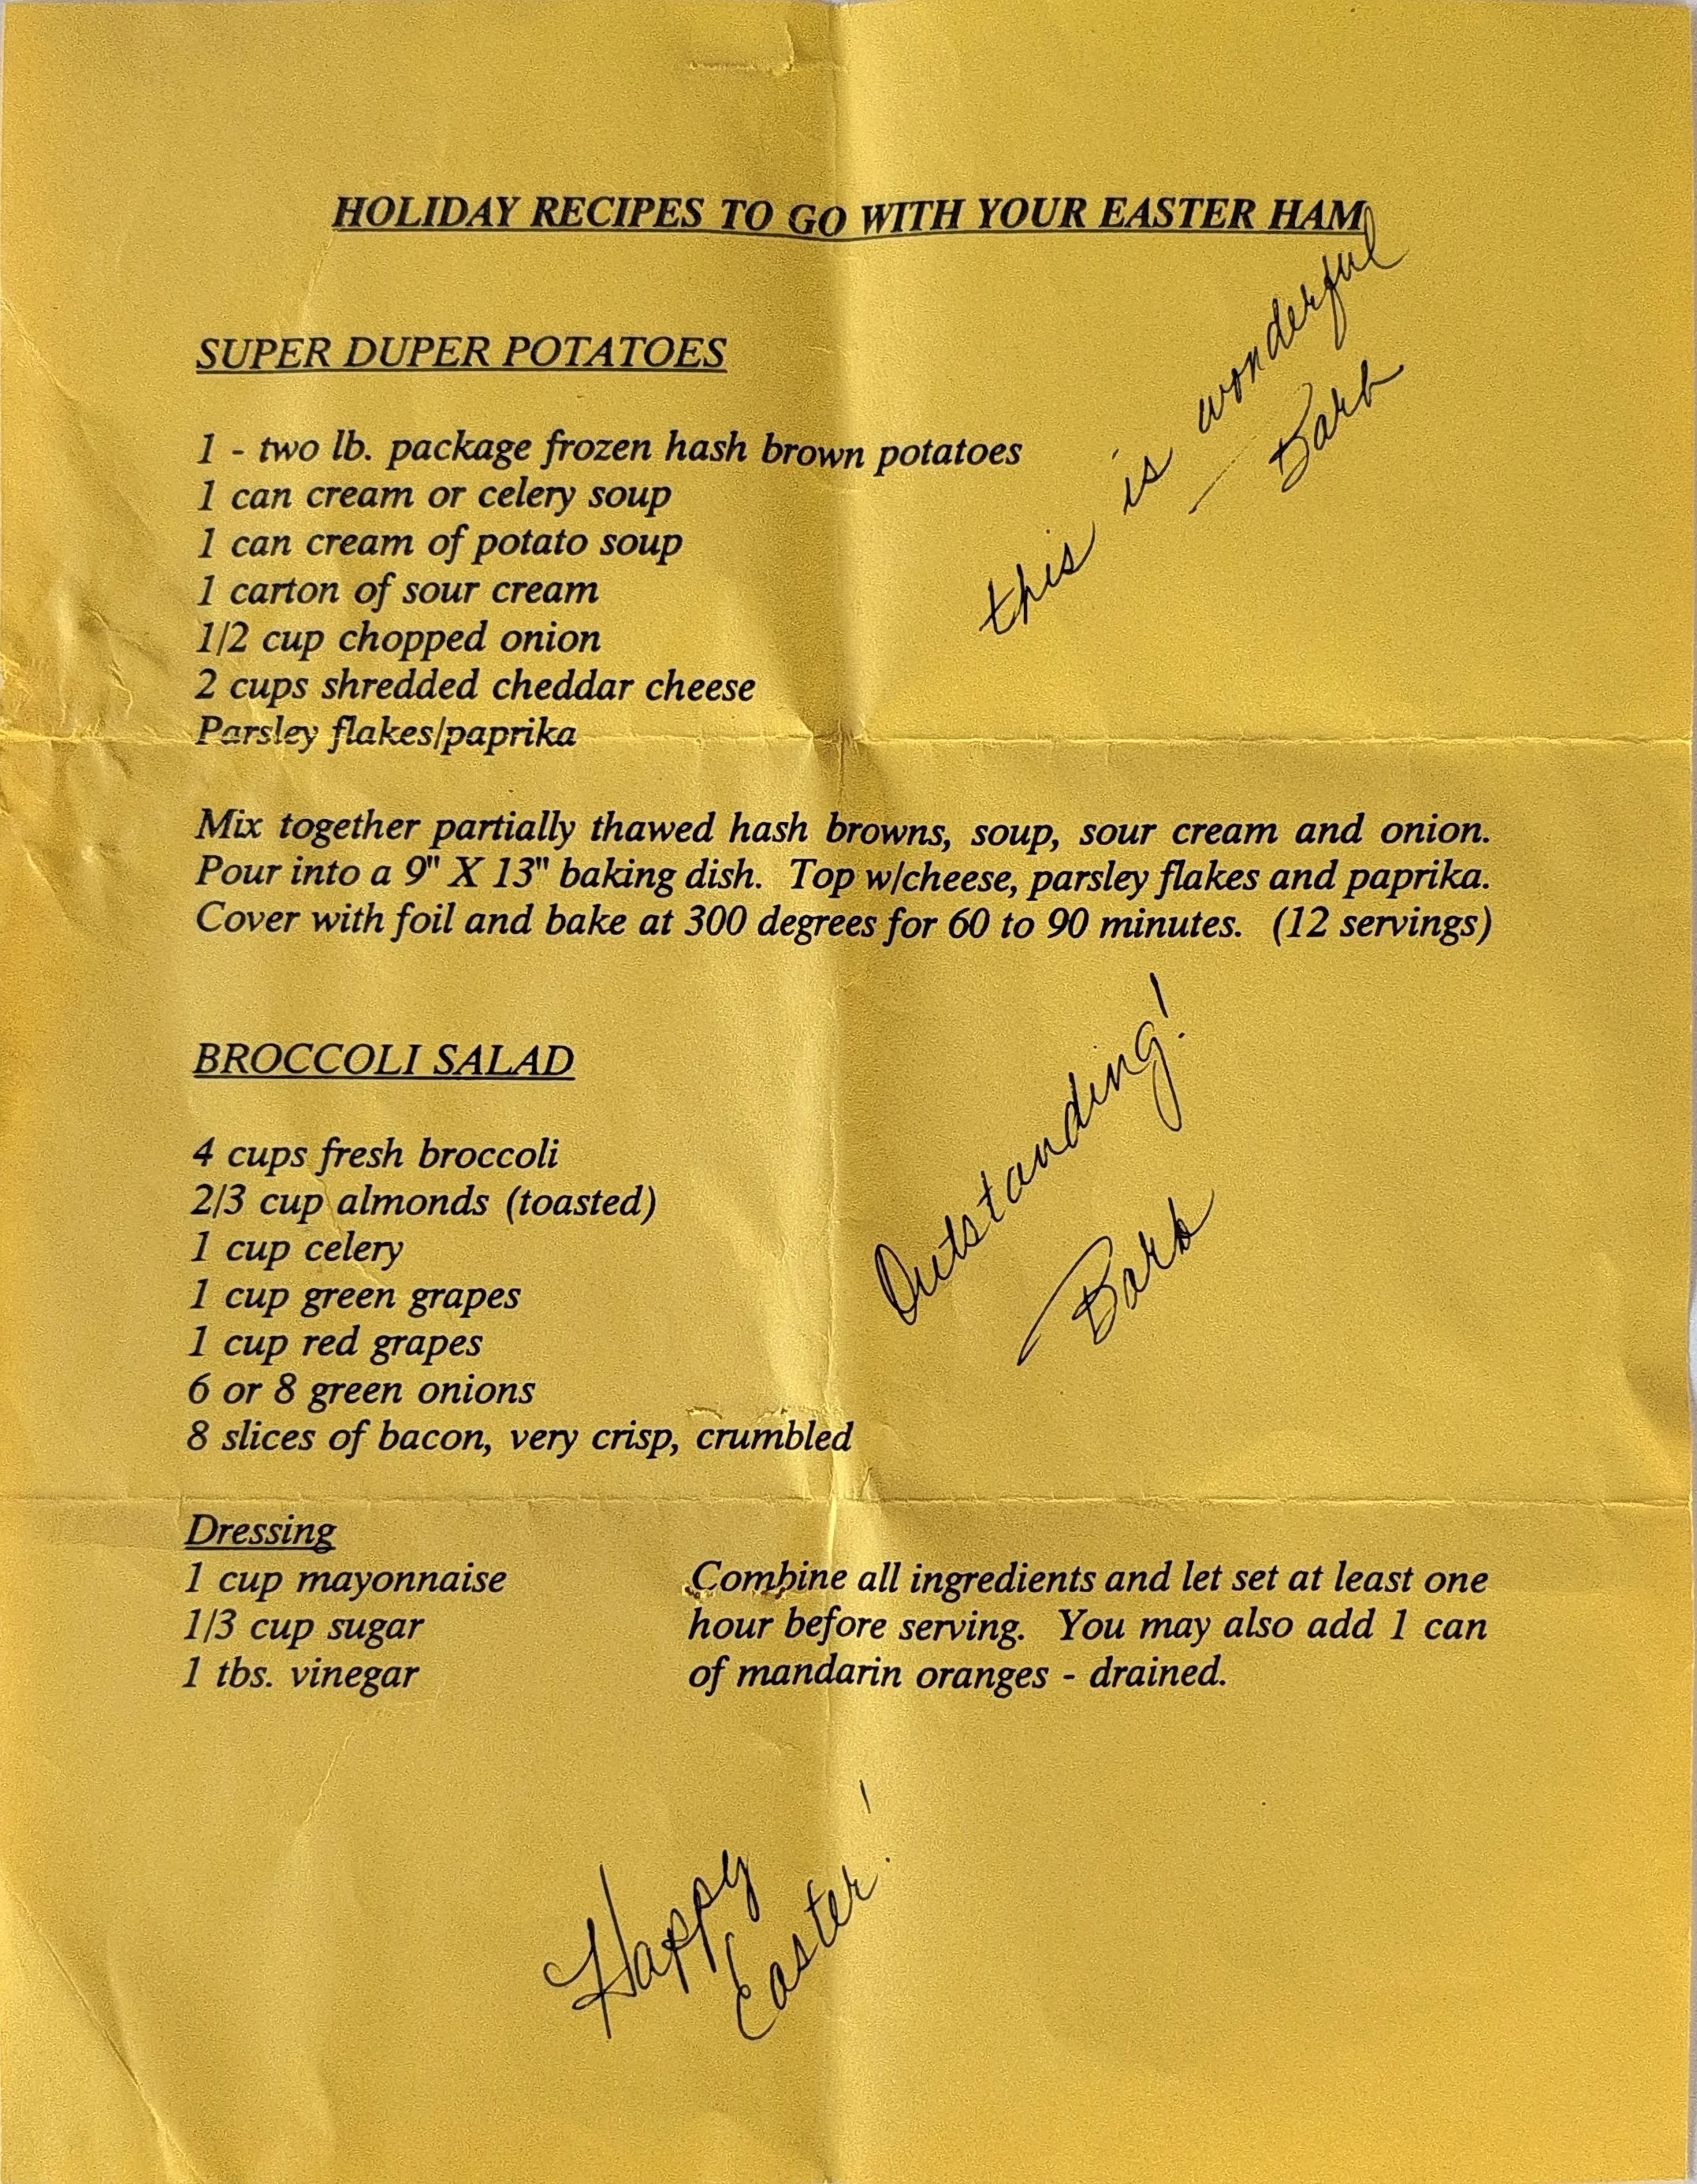 HOLIDAY RECIPES TO GO WITH YOUR EASTER HAM
SUPER DUPER POTATOES
this is wonderful
Barb
1 - two lb. package frozen hash brown potatoes
1 can cream or celery soup
1 can cream of potato soup
1 carton of sour cream
1/2 cup chopped onion
2 cups shredded cheddar cheese
Parsley flakes/paprika
Mix together partially thawed hash browns, soup, sour cream and onion.
Pour into a 9" X 13" baking dish. Top w/cheese, parsley flakes and paprika.
Cover with foil and bake at 300 degrees for 60 to 90 minutes. (12 servings)
BROCCOLI SALAD
Outstanding!
Barb
4 cups fresh broccoli
2/3 cup almonds (toasted)
1 cup celery
1 cup green grapes
1 cup red grapes
6 or 8 green onions
8 slices of bacon, very crisp, crumbled
Dressing
1 cup mayonnaise
1/3 cup sugar
1 tbs. vinegar
Combine all ingredients and let set at least one
hour before serving. You may also add 1 can
of mandarin oranges - drained.
Happy
Easter!